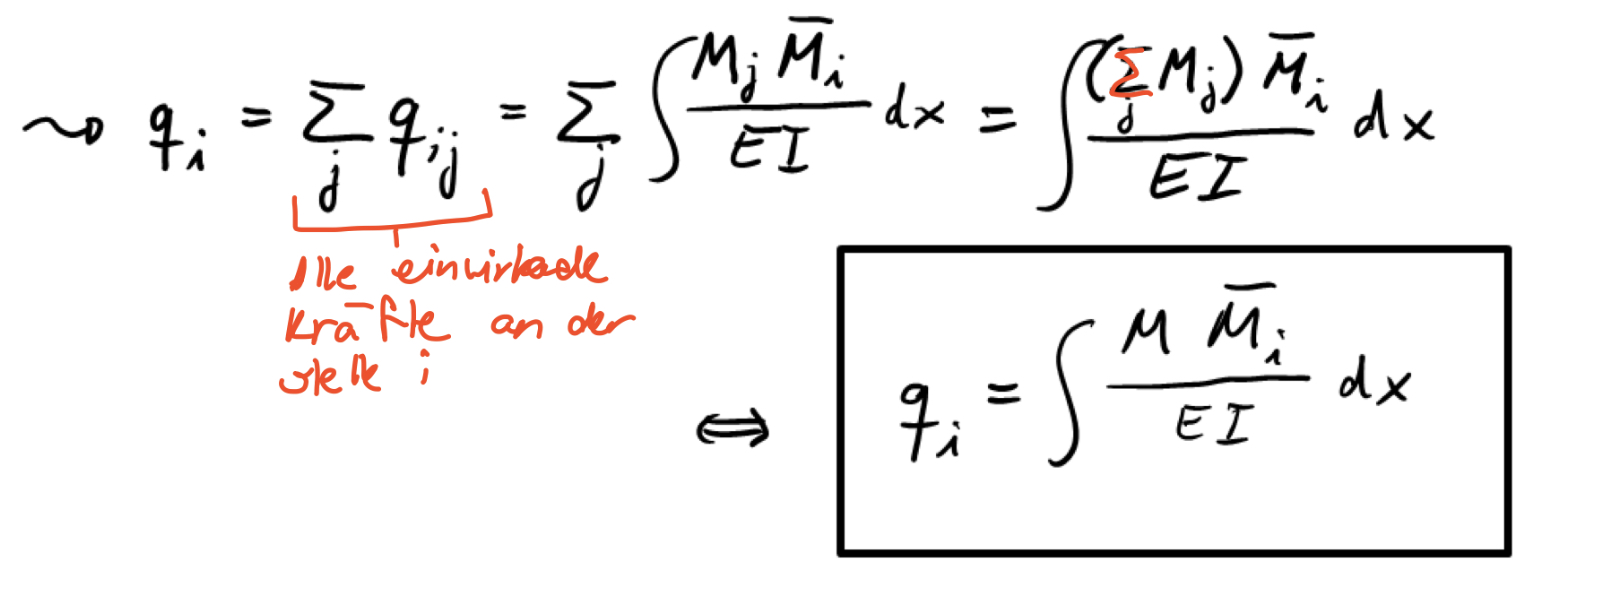 ⇝ qᵢ = Σⱼ qᵢⱼ = Σⱼ ∫ (Mⱼ M̄ᵢ)/(EI) dx = ∫ ((Σⱼ Mⱼ) M̄ᵢ)/(EI) dx
Alle einwirkende
Kräfte an der
stelle i
⇔ qᵢ = ∫ (M M̄ᵢ)/(EI) dx